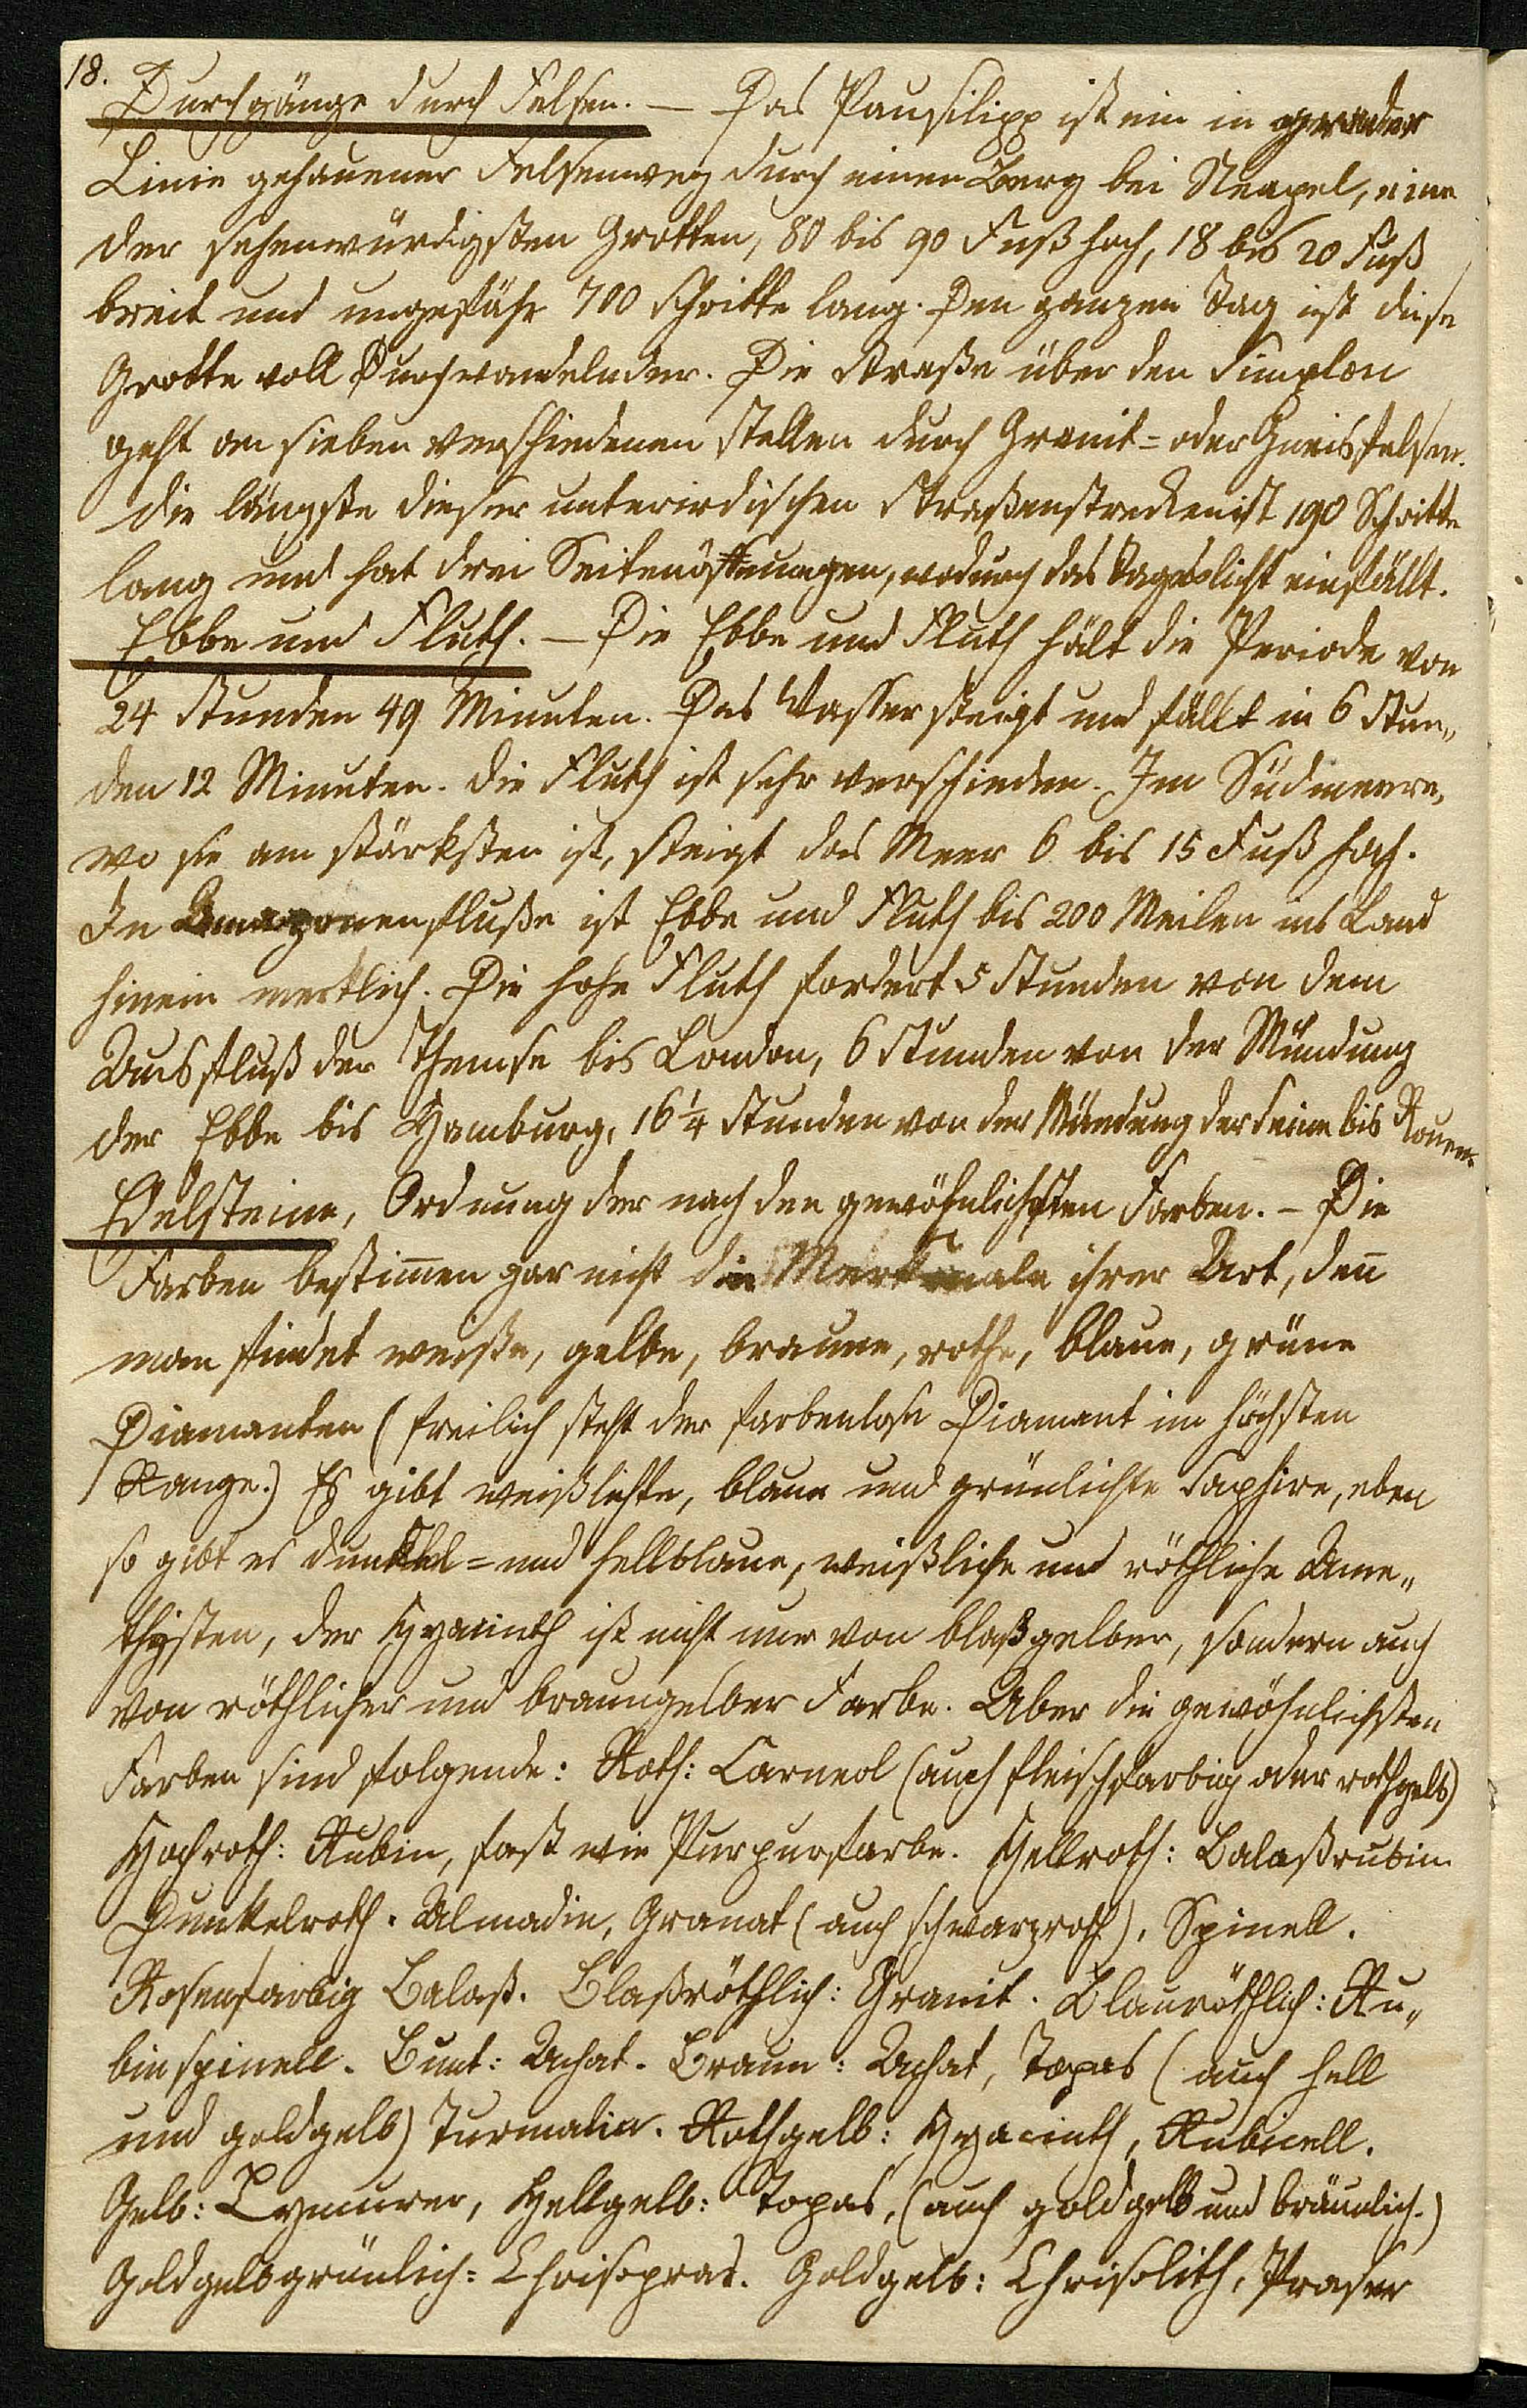 18.
Durchgänge durch Felsen. — Das Pausilipp ist ein in gerader
Linie gehauener Felsenweg durch einen Berg bei Neapel, eine
der sehenwürdigsten Grotten, 80 bis 90 Fuß hoch, 18 bis 20 Fuß
breit und ungefähr 700 Schritte lang. Den ganzen Tag ist diese
Grotte voll Durchwandelnder. Die Straße über den Simplon
geht an sieben verschiedenen Stellen durch Granit= oder Gneisfelsen.
die längste dieser unterirdischen Straßenstrecken ist 190 Schritte
lang und hat drei Seitenöffnungen, wodurch das Tageslicht einfällt.
Ebbe und Fluth. — Die Ebbe und Fluth hält die Periode von
24 Stunden 49 Minuten. Das Wasser steigt und fällt in 6 Stun„
den 12 Minuten. die Fluth ist sehr verschieden. Im Südmeere,
wo sie am stärksten ist, steigt das Meer 6 bis 15 Fuß hoch.
In Amazonenfluße ist Ebbe und Fluth bis 200 Meilen ins Land
hinein merklich. Die hohe Fluth fordert 5 Stunden von dem
Ausfluß der Themse bis London, 6 Stunden von der Mündung
der Ebbe bis Hamburg, 16 1/4 Stunden von der Mündung der Seine bis Rouen.
Edelsteine, Ordnung der nach den gewöhnlichsten Farben. — Die
Farben bestim̄en gar nicht die Merkmale ihrer Art, den̄
man findet weiße, gelbe, braune, rothe, blaue, grüne
Diamanten (freilich steht der farbenlose Diamant im höchsten
Range.) Es gibt weißlichte, blaue und grünlichte Saphire, eben
so gibt es dunkel= und hellblaue, weißliche und röthliche Ame„
thysten, der Hyacinth ist nicht nur von blaßgelber, sondern auch
von röthlicher und braungelber Farbe. Aber die gewöhnlichsten
Farben sind folgende: Roth: Carneol (auch fleischfarbig oder rothgelb)
Hochroth: Rubin, fast wie Purpurfarbe. Hellroth: Balaßrubin
Dunkelroth. Almadin, Granat (auch schwarzroth), Spinell.
Rosenfarbig Balaß. Blaßröthlich: Granit. Blauröthlich: Ru„
binspinell. Bunt: Achat. Braun: Achat, Topas (auch hell
und goldgelb) Turmalin. Rothgelb: Hyacinth, Rubicell.
Gelb: Lyncurer, Hellgelb: Topas, (auch goldgelb und bräunlich.)
Goldgelbgrünlich: Chrisopras. Goldgelb: Chrisolith, Praser